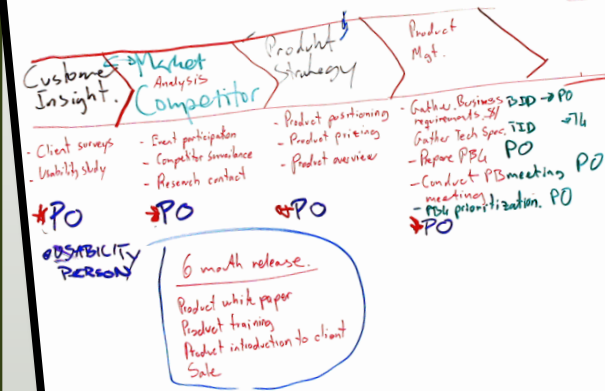 Customer
Insight.
Market
Analysis
Competitor
Product
Strategy
Product
Mgt.
- Client surveys
- Usability study
*PO
USABILITY
PERSON
- Event participation
- Competitor surveilance
- Research contact
*PO
- Product positioning
- Product pricing
- Product overview
*PO
- Gather Business BID → PO
requirements.
Gather Tech Spec. TID → TL
- Prepare PBG PO
- Conduct PB meeting PO
meeting
- PBG prioritization. PO
*PO
6 month release.
Product white paper
Product training
Product introduction to client
Sale